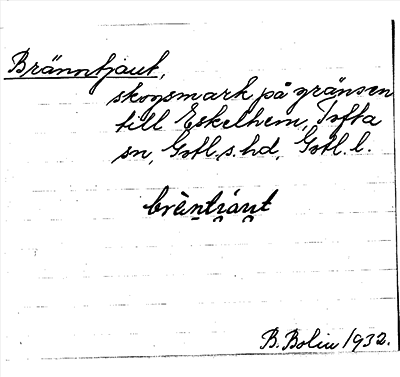 Bränntjaut,
skogsmark på gränsen
till Eskelhem, Tofta
sn, Gotl. s. hd, Gotl. l.
brèntiáut
B. Bolin 1932.